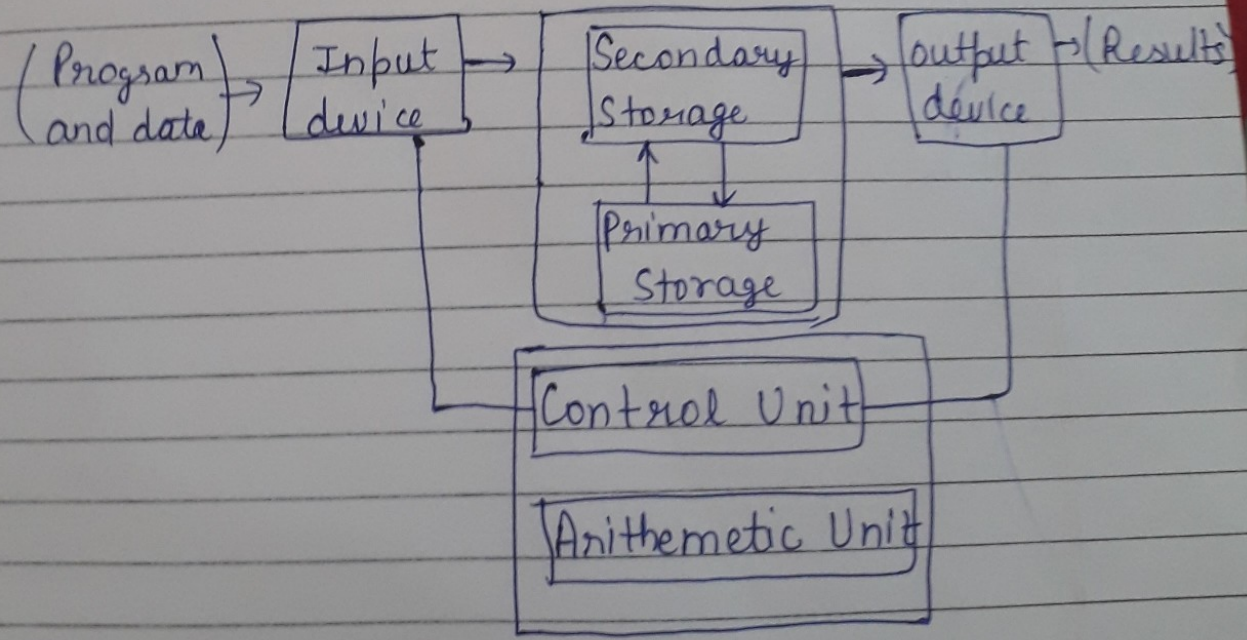 (Program
and data)
Input
device
Secondary
Storage
Primary
Storage
output
device
(Results)
Control Unit
Arithemetic Unit